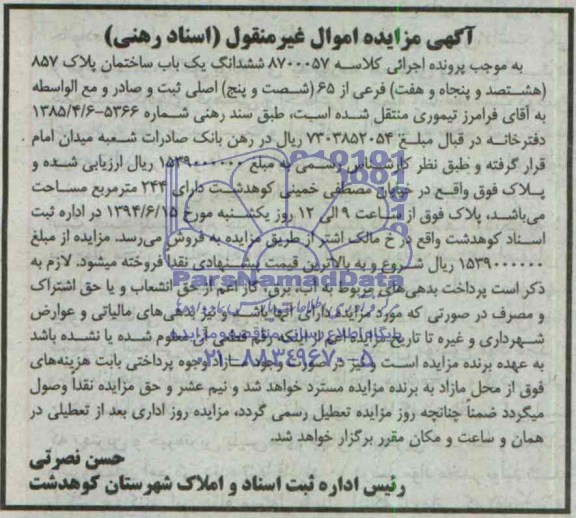 آگهی مزایده اموال غیرمنقول (اسناد رهنی)
به موجب پرونده اجرائی کلاسه ۸۷۰۰۰۵۷ ششدانگ یک باب ساختمان پلاک ۸۵۷
(هشتصد و پنجاه و هفت) فرعی از ۶۵ (شصت و پنج) اصلی ثبت و صادر و مع الواسطه
به آقای فرامرز تیموری منتقل شده است، طبق سند رهنی شماره ۵۳۶۶-۱۳۸۵/۴/۶
دفترخانه در قبال مبلغ ۷۳۰۳۸۵۲۰۵۴ ریال در رهن بانک صادرات شعبه میدان امام
قرار گرفته و طبق نظر کارشناس رسمی به مبلغ ۱۵۳۹۰۰۰۰۰۰ ریال ارزیابی شده و
پلاک فوق واقع در خیابان مصطفی خمینی کوهدشت دارای ۲۴۴ مترمربع مساحت
می‌باشد، پلاک فوق از ساعت ۹ الی ۱۲ روز یکشنبه مورخ ۱۳۹۴/۶/۱۵ در اداره ثبت
اسناد کوهدشت واقع در خ مالک اشتر از طریق مزایده به فروش می‌رسد. مزایده از مبلغ
۱۵۳۹۰۰۰۰۰۰ ریال شروع و به بالاترین قیمت پیشنهادی نقدا فروخته میشود. لازم به
ذکر است پرداخت بدهی‌های مربوط به آب، برق، گاز اعم از حق انشعاب و یا حق اشتراک
و مصرف در صورتی که مورد مزایده دارای آنها باشد و نیز بدهی‌های مالیاتی و عوارض
شهرداری و غیره تا تاریخ مزایده اعم از اینکه رقم قطعی آن معلوم شده یا نشده باشد
به عهده برنده مزایده است و نیز در صورت وجود مازاد وجوه پرداختی بابت هزینه‌های
فوق از محل مازاد به برنده مزایده مسترد خواهد شد و نیم عشر و حق مزایده نقدا وصول
میگردد ضمناً چنانچه روز مزایده تعطیل رسمی گردد، مزایده روز اداری بعد از تعطیلی در
همان و ساعت و مکان مقرر برگزار خواهد شد.
حسن نصرتی
رئیس اداره ثبت اسناد و املاک شهرستان کوهدشت
ParsNamadData
پایگاه اطلاع رسانی مناقصه و مزایده
۰۲۱-۸۸۳۴۹۶۷۰-۵